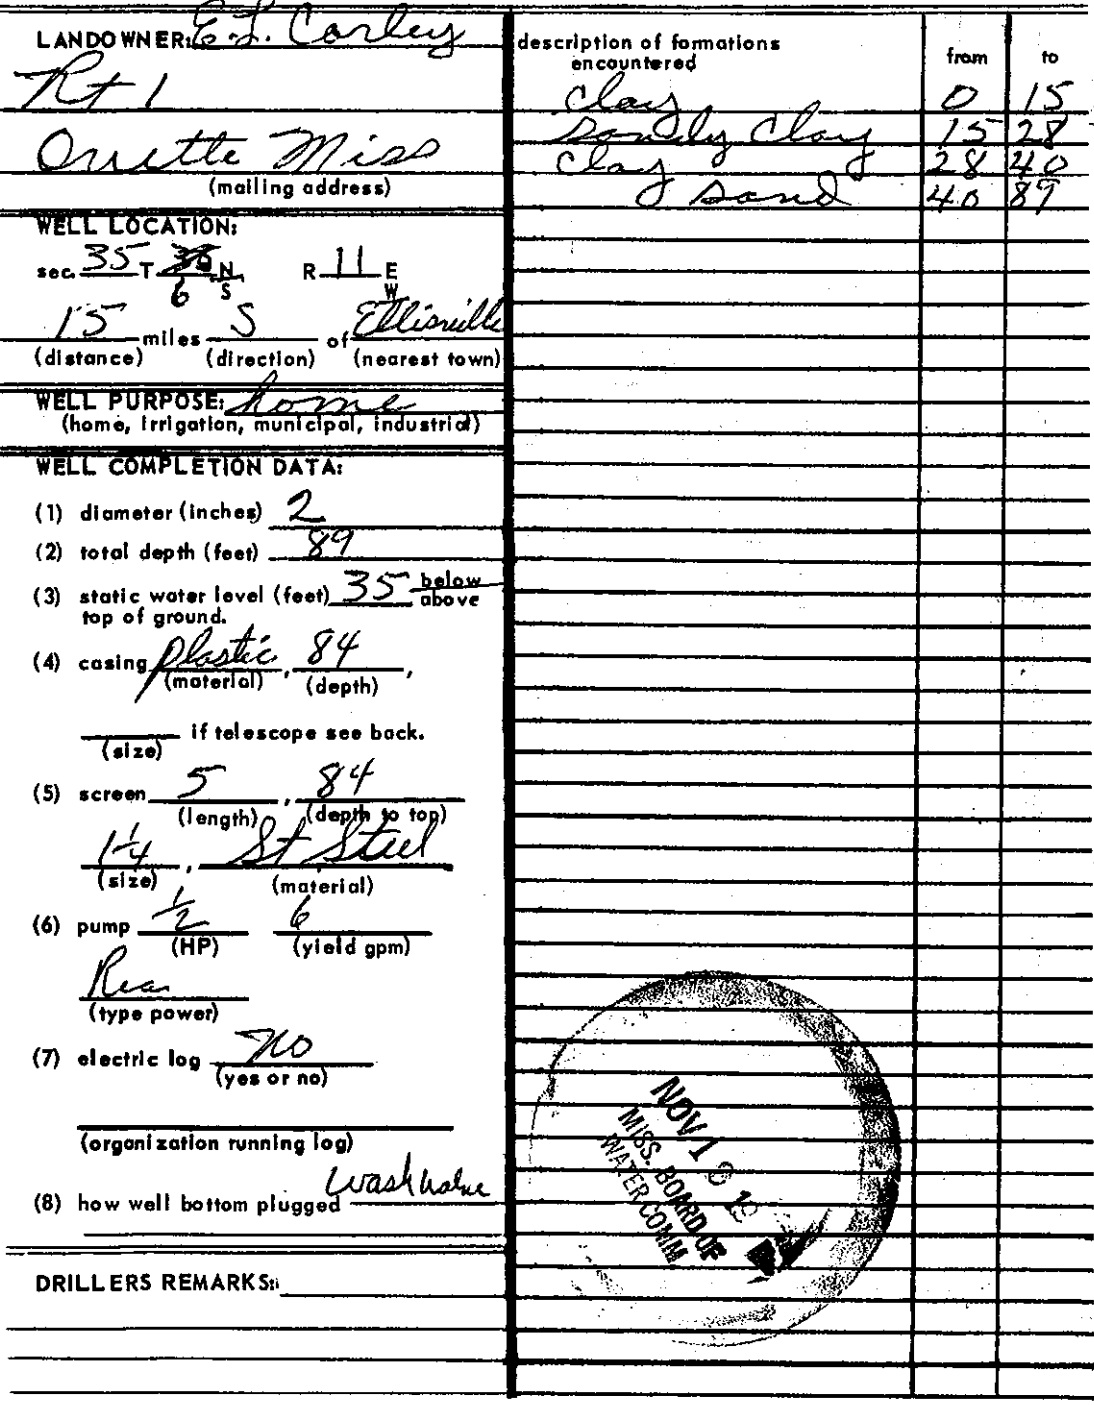 LANDOWNER: E.L. Corley
Rt 1
Ovette Miss
(mailing address)
WELL LOCATION:
sec. 35 T 6 N R 11 E
S W
15 miles S of Ellisville
(distance) (direction) (nearest town)
WELL PURPOSE: home
(home, irrigation, municipal, industrial)
WELL COMPLETION DATA:
(1) diameter (inches) 2
(2) total depth (feet) 89
(3) static water level (feet) 35 below
above
top of ground.
(4) casing plastic, 84,
(material) (depth)
if telescope see back.
(size)
(5) screen 5, 84
(length) (depth to top)
1 1/4, St Steel
(size) (material)
(6) pump 1/2 6
(HP) (yield gpm)
(type power)
(7) electric log no
(yes or no)
(organization running log)
(8) how well bottom plugged wash
DRILLERS REMARKS:
description of formations from to
encountered
clay 0 15
sandy clay 15 28
clay 28 40
sand 40 89
NOV 1
MISS. BOARD OF
WATER COMM